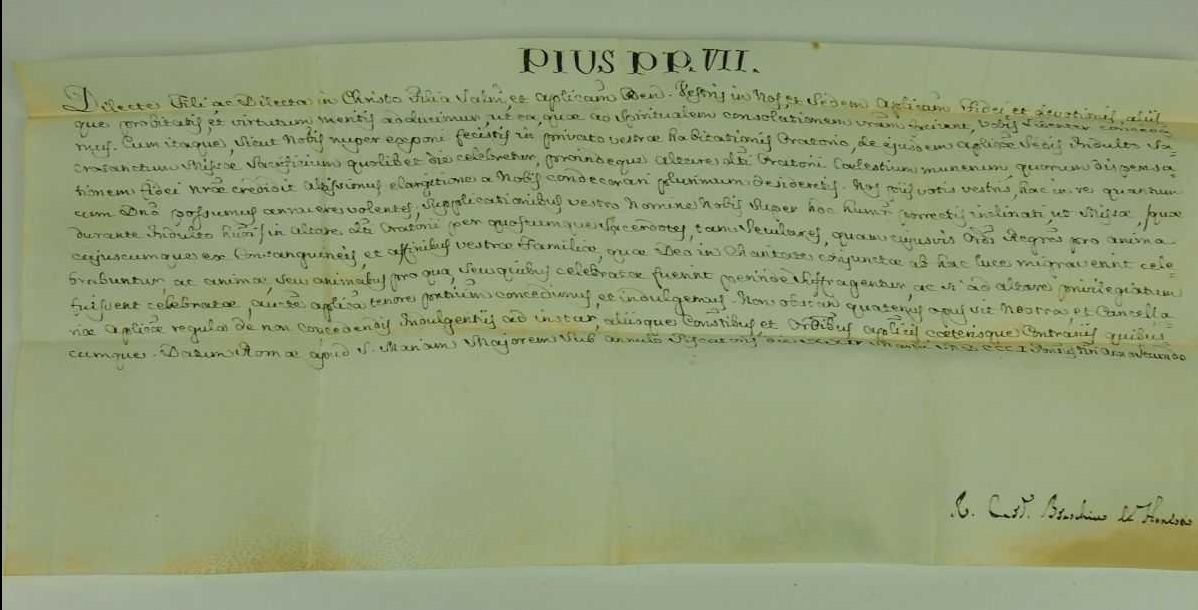 PIUS PP. VII.
Dilecte Fili ac Dilecta in Christo Filia Salm̃ et aplicam̃ Ben. Vestris in Nos et Sedem Aplicam, Fidei et devotionis, aliis
que probitatis et virtutum meritis adducimur ut ea, quæ ad spiritualem consolationem vram̃ faciant, vobis libenter concedi
mus. Cum itaque, sicut Nobis nuper exponi fecistis in privato vestræ habitationis Oratorio, de ejusdem aplicæ Sedis Indulto Sa=
crosanctum Missæ Sacrificium quolibet die celebretur, proindeque Altare dti Oratorii Cœlestium munerum quorum dispensa=
tionem fidei nræ credidit Altissimus elargitione a Nobis condecorari plurimum desideretis. Nos piis votis vestris, hac in re quantum
cum Dno possumus annuere volentes, supplicationibus vestro Nomine Nobis super hoc humr̃ porrectis inclinati, ut Missæ, quæ
durante Indulto hujusm̃i in Altare dti Oratorii per quoscumque Sacerdotes, tam Seculares, quam cujusvis Ordis Regres pro anima
cujuscumque ex Consanguineis, et affinibus vestræ Familiæ, quæ Deo in Charitate conjunctæ ab hac luce migraverint cele
brabuntur, ac animæ, seu animabus pro qua, seu quibus celebratæ fuerint perinde suffragentur, ac si ad altare privilegiatum
fuissent celebratæ, aucte aplica tenore pntium concedimus, et indulgemus. Non obstan quatenus opus sit Nostra, et Cancella
riæ Aplicæ regula de non concedendis Indulgentiis ad instar, aliisque Constibus et Ordibus aplicis cæterisque Contrariis quibus
cumque. Datum Romæ apud S. Mariam Majorem Sub annulo Piscatoris die Martii MDCCCI Pontif Nri Anno Secundo
R. Card. Braschius de Honestis